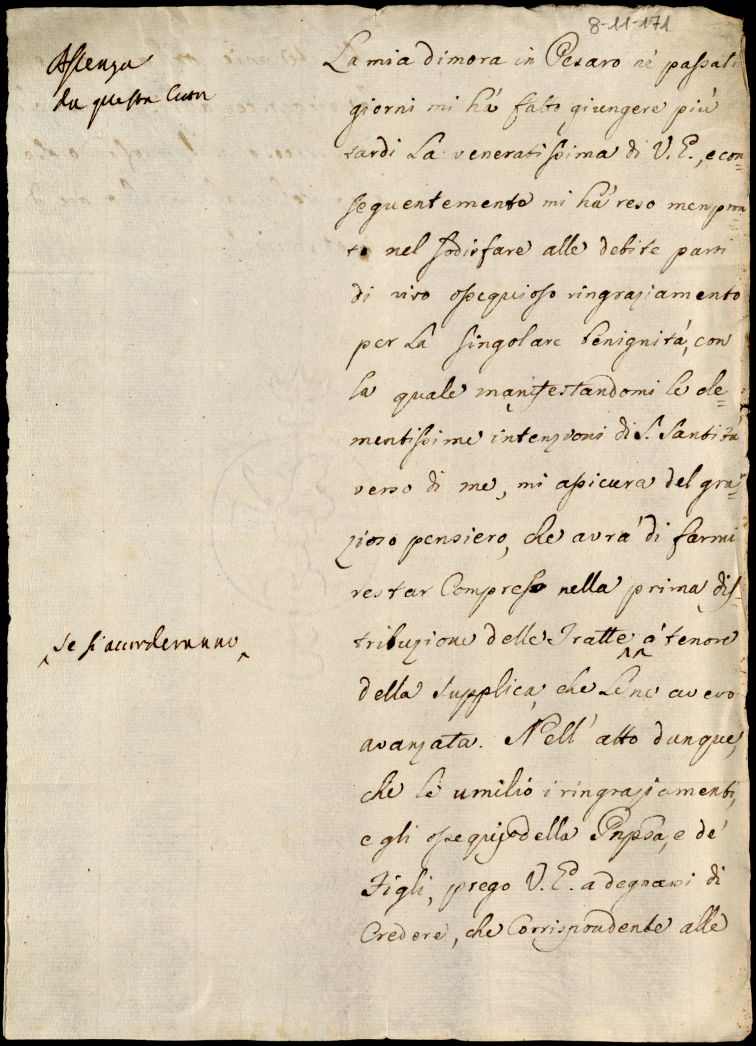 8-11-171
Assenza
da questa Città
La mia dimora in Pesaro ne' passati
giorni mi há fatto giungere più
tardi La veneratissima di V. E., e con=
seguentemente mi há reso men pron
to nel sodisfare alle debite parti
di vivo ossequioso ringraziamento
per La singolare benignità, con
la quale manifestandomi le cle=
mentissime intenzioni di S. Santità
verso di me, mi assicura del gra=
zioso pensiero, che avrà di farmi
restar Compreso nella prima dis=
tribuzione delle Tratte à tenore
se si accorderanno
della supplica, che Le ne avevo
avanzata. Nell' atto dunque,
che le umilio i ringraziamenti,
e gli ossequij della Pnpssa, e de'
Figli, prego V. E. a degnarsi di
Credere, che Corrispondente alle